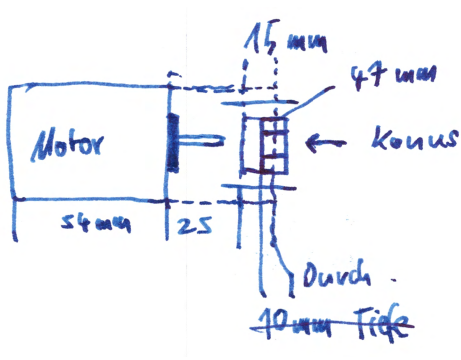 15 mm
47 mm
Motor
← Konus
54mm
25
Durch.
10mm Tiefe